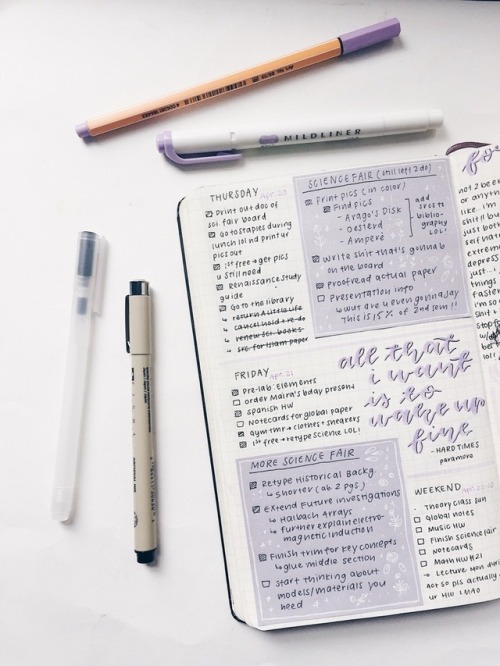 MILDLINER
THURSDAY Apr. 20
Print out doc of
sci fair board
Go to staples during
lunch lol nd print ur
pics out
1st free → get pics
u still need
Renaissance study
guide
Go to the library
↳ return A Little Life
↳ cancel hold + re-do
↳ renew sci. books
↳ src. for Islam paper
SCIENCE FAIR (still left 2 do)
Print pics (in color)
Find pics
- Arago's Disk
- Oersterd
- Ampere
add
srcs to
biblio-
graphy
LOL!
Write shit that's gonna b
on the board
Proofread actual paper
Presentation info
↳ wut are u even gonna say
this is 15% of 2nd sem!!
FRIDAY Apr. 21
Pre-lab: Elements
order Maira's bday present
Spanish HW
Notecards for global paper
gym tmr → clothes + sneakers
1st free → retype science LOL!
all that
i want
is to
wake up
fine
- HARD TIMES
paramore
MORE SCIENCE FAIR
Retype Historical Backg.
↳ shorter (ab 2 pgs.)
Extend Future investigations
↳ Halbach Arrays
↳ further explain electro-
magnetic induction
Finish trim for key concepts
↳ glue middle section
Start thinking about
models/materials you
need
WEEKEND
Theory class Sun
Global notes
Music HW
Finish science fair
Notecards
Math HW #21
not 2 be
or anything
like, i'm
both
self hate
extreme
depress
just
things
faster
i'm
stop
lol!